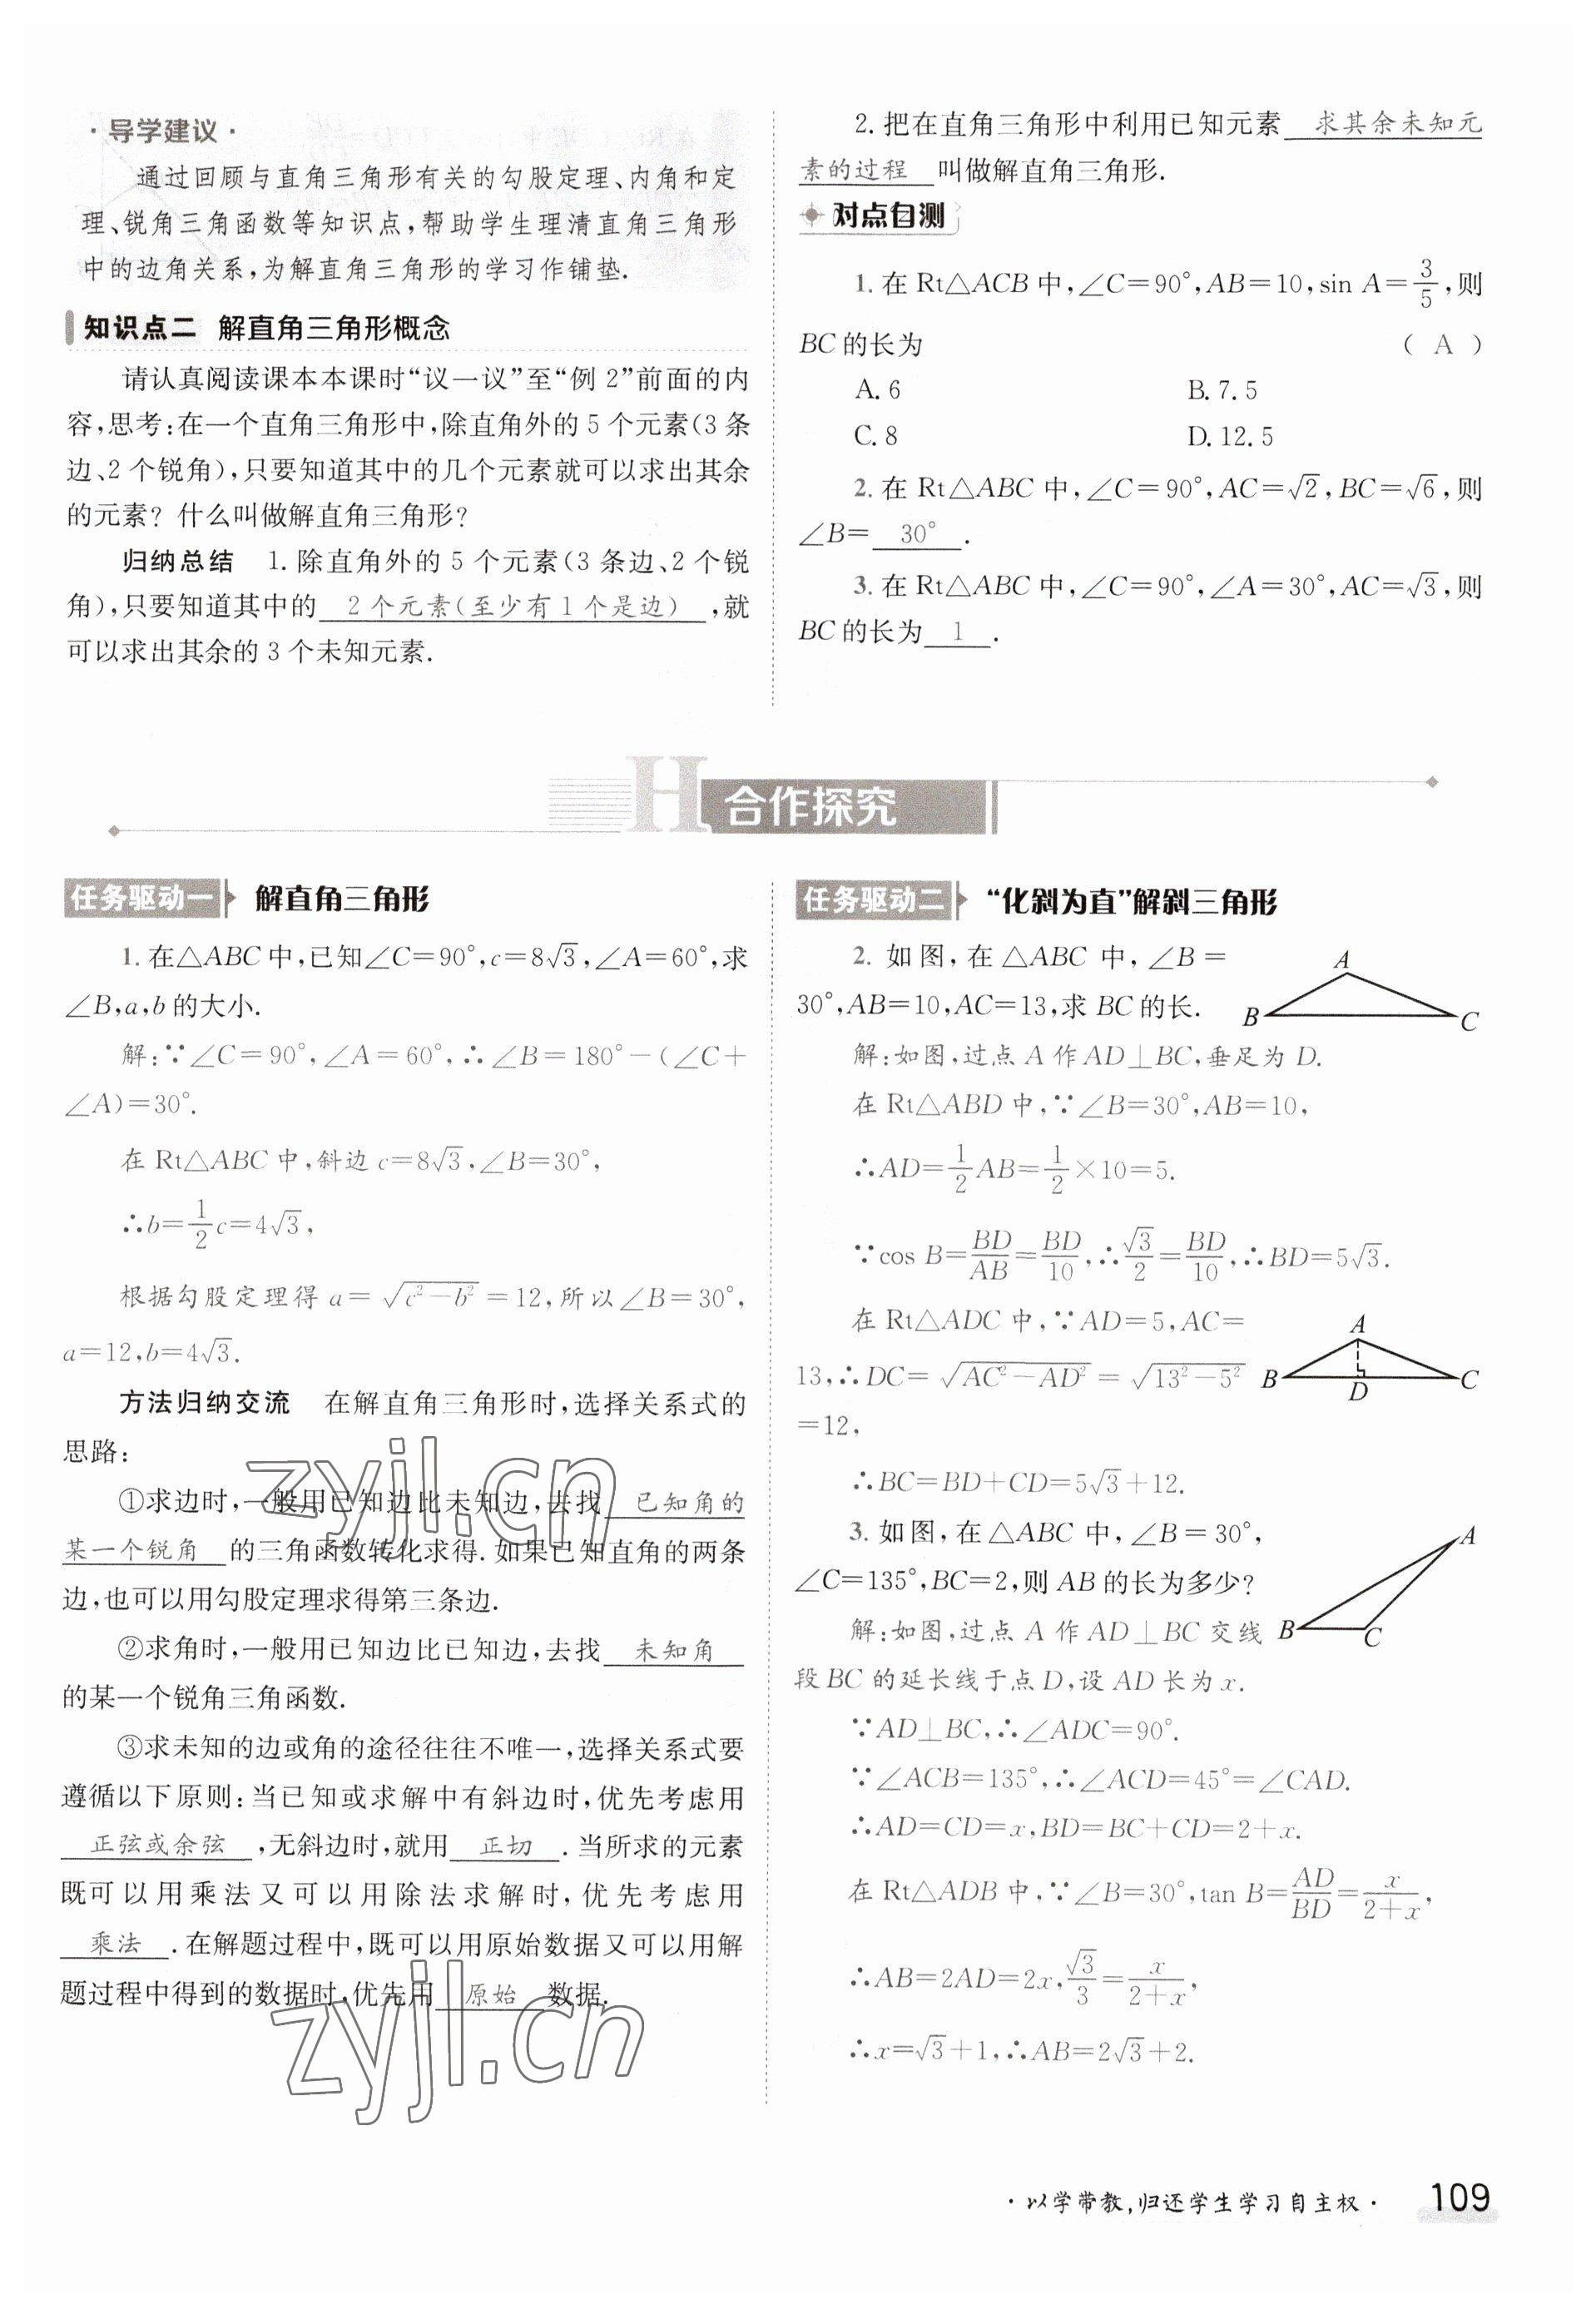 ·导学建议·
通过回顾与直角三角形有关的勾股定理、内角和定
理、锐角三角函数等知识点,帮助学生理清直角三角形
中的边角关系,为解直角三角形的学习作铺垫.
知识点二 解直角三角形概念
请认真阅读课本本课时“议一议”至“例 2”前面的内
容,思考:在一个直角三角形中,除直角外的 5 个元素(3 条
边、2 个锐角),只要知道其中的几个元素就可以求出其余
的元素? 什么叫做解直角三角形?
归纳总结 1. 除直角外的 5 个元素(3 条边、2 个锐
角),只要知道其中的 2 个元素(至少有 1 个是边) ,就
可以求出其余的 3 个未知元素.
2. 把在直角三角形中利用已知元素 求其余未知元
素的过程 叫做解直角三角形.
对点自测
1. 在 Rt△ACB 中,∠C=90°,AB=10,sin A=3/5,则
BC 的长为 ( A )
A. 6 B. 7. 5
C. 8 D. 12. 5
2. 在 Rt△ABC 中,∠C=90°,AC=√2,BC=√6,则
∠B= 30° .
3. 在 Rt△ABC 中,∠C=90°,∠A=30°,AC=√3,则
BC 的长为 1 .
H 合作探究
任务驱动一 解直角三角形
1. 在△ABC 中,已知∠C=90°,c=8√3,∠A=60°,求
∠B,a,b 的大小.
解:∵∠C=90°,∠A=60°,∴∠B=180°-(∠C+
∠A)=30°.
在 Rt△ABC 中,斜边 c=8√3,∠B=30°,
∴b=1/2c=4√3,
根据勾股定理得 a=√(c²-b²)=12,所以∠B=30°,
a=12,b=4√3.
方法归纳交流 在解直角三角形时,选择关系式的
思路:
①求边时,一般用已知边比未知边,去找 已知角的
某一个锐角 的三角函数转化求得. 如果已知直角的两条
边,也可以用勾股定理求得第三条边.
②求角时,一般用已知边比已知边,去找 未知角
的某一个锐角三角函数.
③求未知的边或角的途径往往不唯一,选择关系式要
遵循以下原则:当已知或求解中有斜边时,优先考虑用
正弦或余弦 ,无斜边时,就用 正切 . 当所求的元素
既可以用乘法又可以用除法求解时,优先考虑用
乘法 . 在解题过程中,既可以用原始数据又可以用解
题过程中得到的数据时,优先用 原始 数据.
任务驱动二 “化斜为直”解斜三角形
2. 如图,在△ABC 中,∠B=
30°,AB=10,AC=13,求 BC 的长.
A
B
C
解:如图,过点 A 作 AD⊥BC,垂足为 D.
在 Rt△ABD 中,∵∠B=30°,AB=10,
∴AD=1/2AB=1/2×10=5.
∵cos B=BD/AB=BD/10,∴√3/2=BD/10,∴BD=5√3.
在 Rt△ADC 中,∵AD=5,AC=
13,∴DC=√(AC²-AD²)=√(13²-5²)
=12,
A
B
D
C
∴BC=BD+CD=5√3+12.
3. 如图,在△ABC 中,∠B=30°,
∠C=135°,BC=2,则 AB 的长为多少?
A
B
C
解:如图,过点 A 作 AD⊥BC 交线
段 BC 的延长线于点 D,设 AD 长为 x.
∵AD⊥BC,∴∠ADC=90°.
∵∠ACB=135°,∴∠ACD=45°=∠CAD.
∴AD=CD=x,BD=BC+CD=2+x.
在 Rt△ADB 中,∵∠B=30°,tan B=AD/BD=x/(2+x),
∴AB=2AD=2x,√3/3=x/(2+x),
∴x=√3+1,∴AB=2√3+2.
zyjl.cn
zyjl.cn
·以学带教,归还学生学习自主权· 109